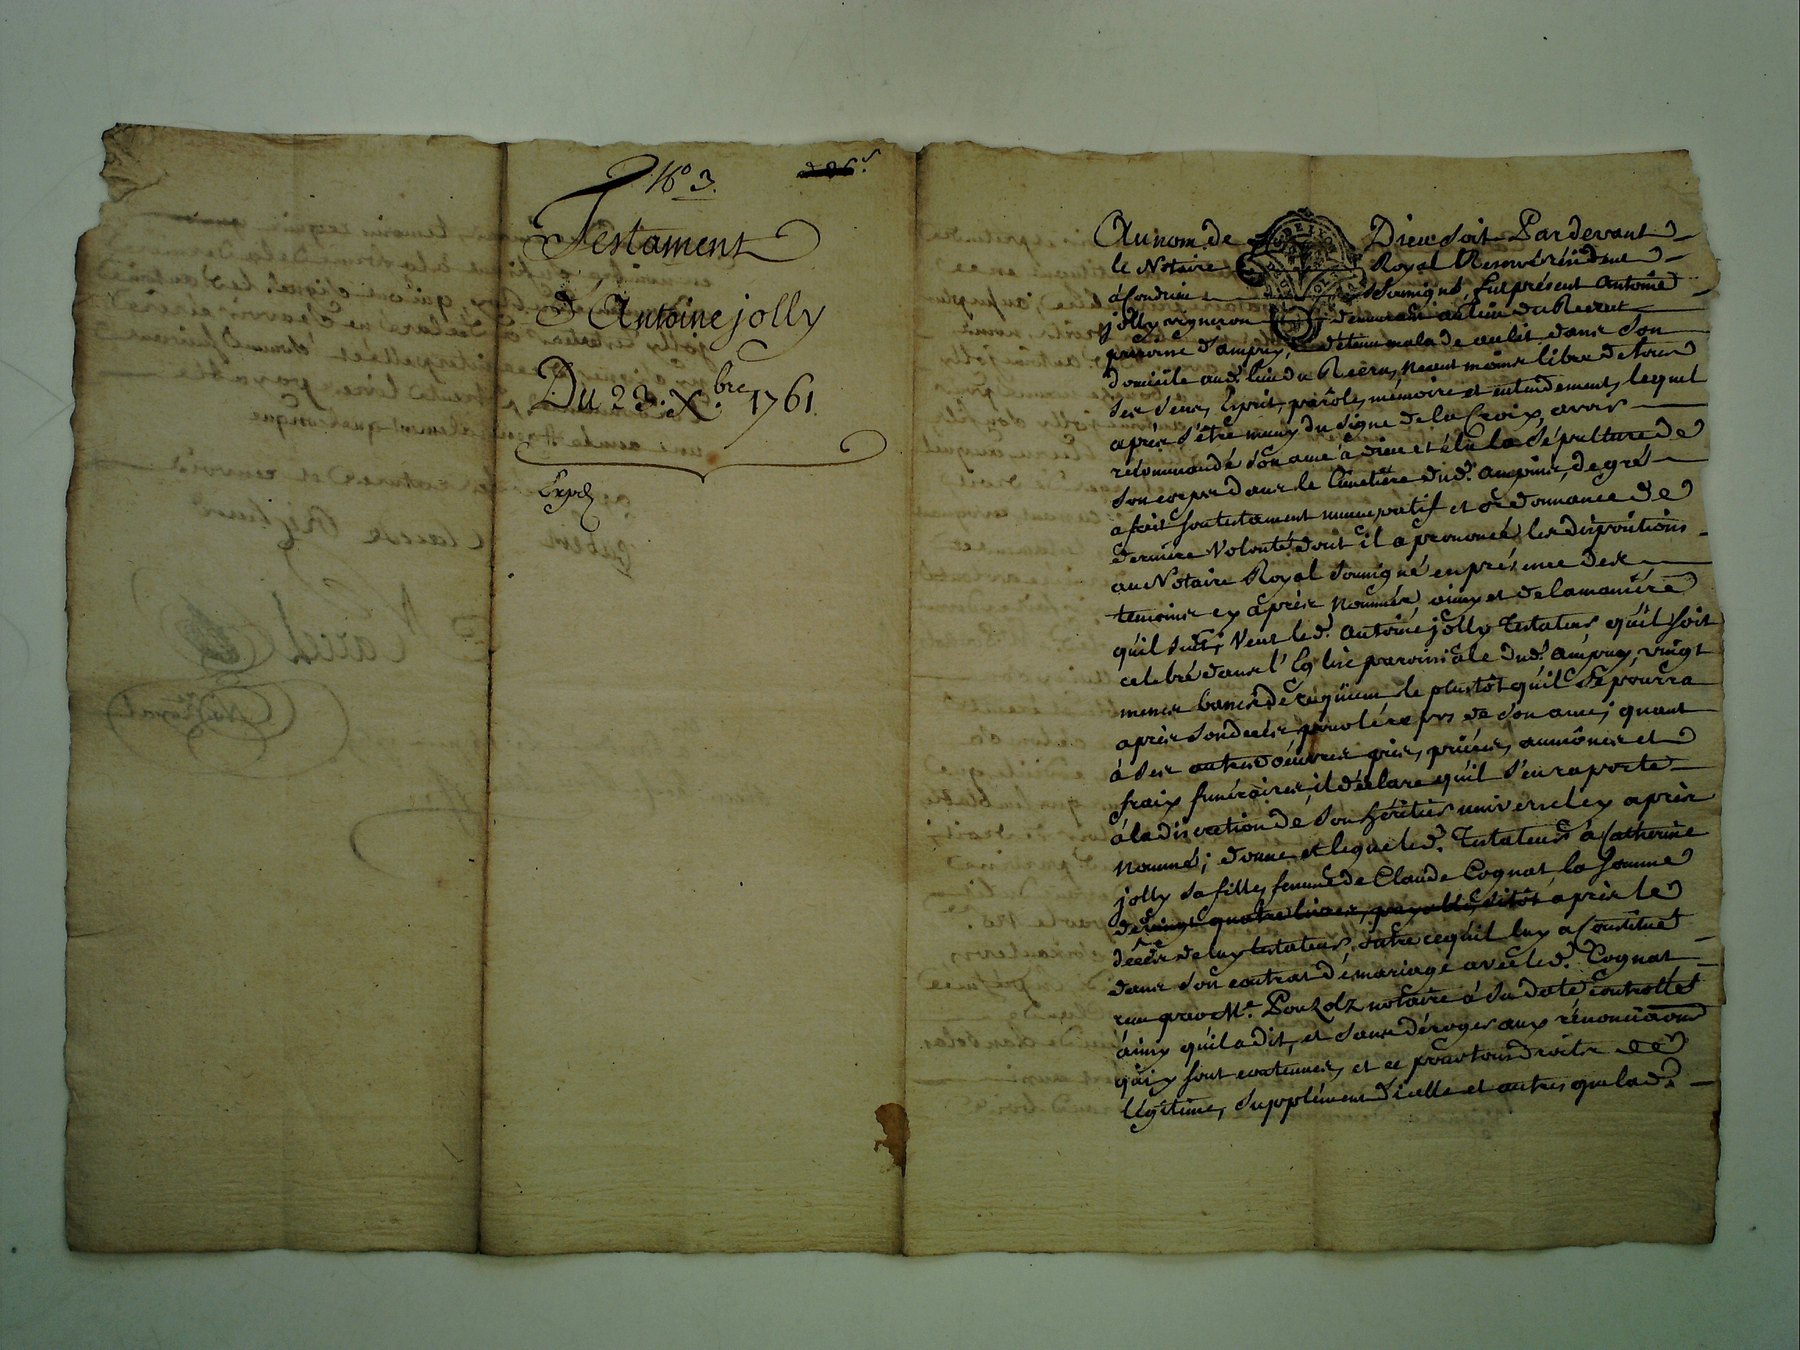 No 3.
Testament
d'Antoine jolly
Du 23. Xbre 1761.
Expé
Au nom de Dieu soit Pardevant
le Notaire Royal
à Condrieu soussigné, fut présent Antoine
jolly vigneron demeurant au lieu du Recru
paroisse d'ampuy, détenu malade au lit dans son
domicile aud. lieu du Recru, neant moins libre de tous
ses sens, esprit, parole, mémoire et entendement, lequel
après s'être muny du signe de la Croix, avoir
recommandé son ame à dieu et élu la sépulture de
son corps dans le Cimetière dud. ampuis, de gré
a fait son testament nuncupatif et ordonnance de
dernière Volonté dont il a prononcé les dispositions
au Notaire Royal soussigné en présence des
temoins cy après nommés, ainsy et de la manière
qu'il suit; Veut led. Antoine jolly Testateur qu'il soit
celebré dans l'Eglise paroissiale dud. ampuy, vingt
messes basses de requiem le plustôt qu'il se pourra
après son decès pour le repos de son ame; quant
à ses autres oeuvres pies, prières, aumônes et
fraix funéraires, il déclare qu'il s'en raporte
à la discretion de son héritier universel cy après
nommé; donne et legue led. Testateur à Catherine
jolly sa fille, femme de Claude Cognat, la somme
de vingt quatre livres, payable, sitôt après le
décès de luy testateur, outre ce qu'il luy a Constitué
dans son contrat de mariage avec led. Cognat
reçu par Me. Pouzolz notaire à sa date controllé
ainsy qu'il a dit, et sans déroger aux rénonciations
qui y sont contenues, et ce pour tous droits de
légitime, supplément d'icelle et autres que lad.